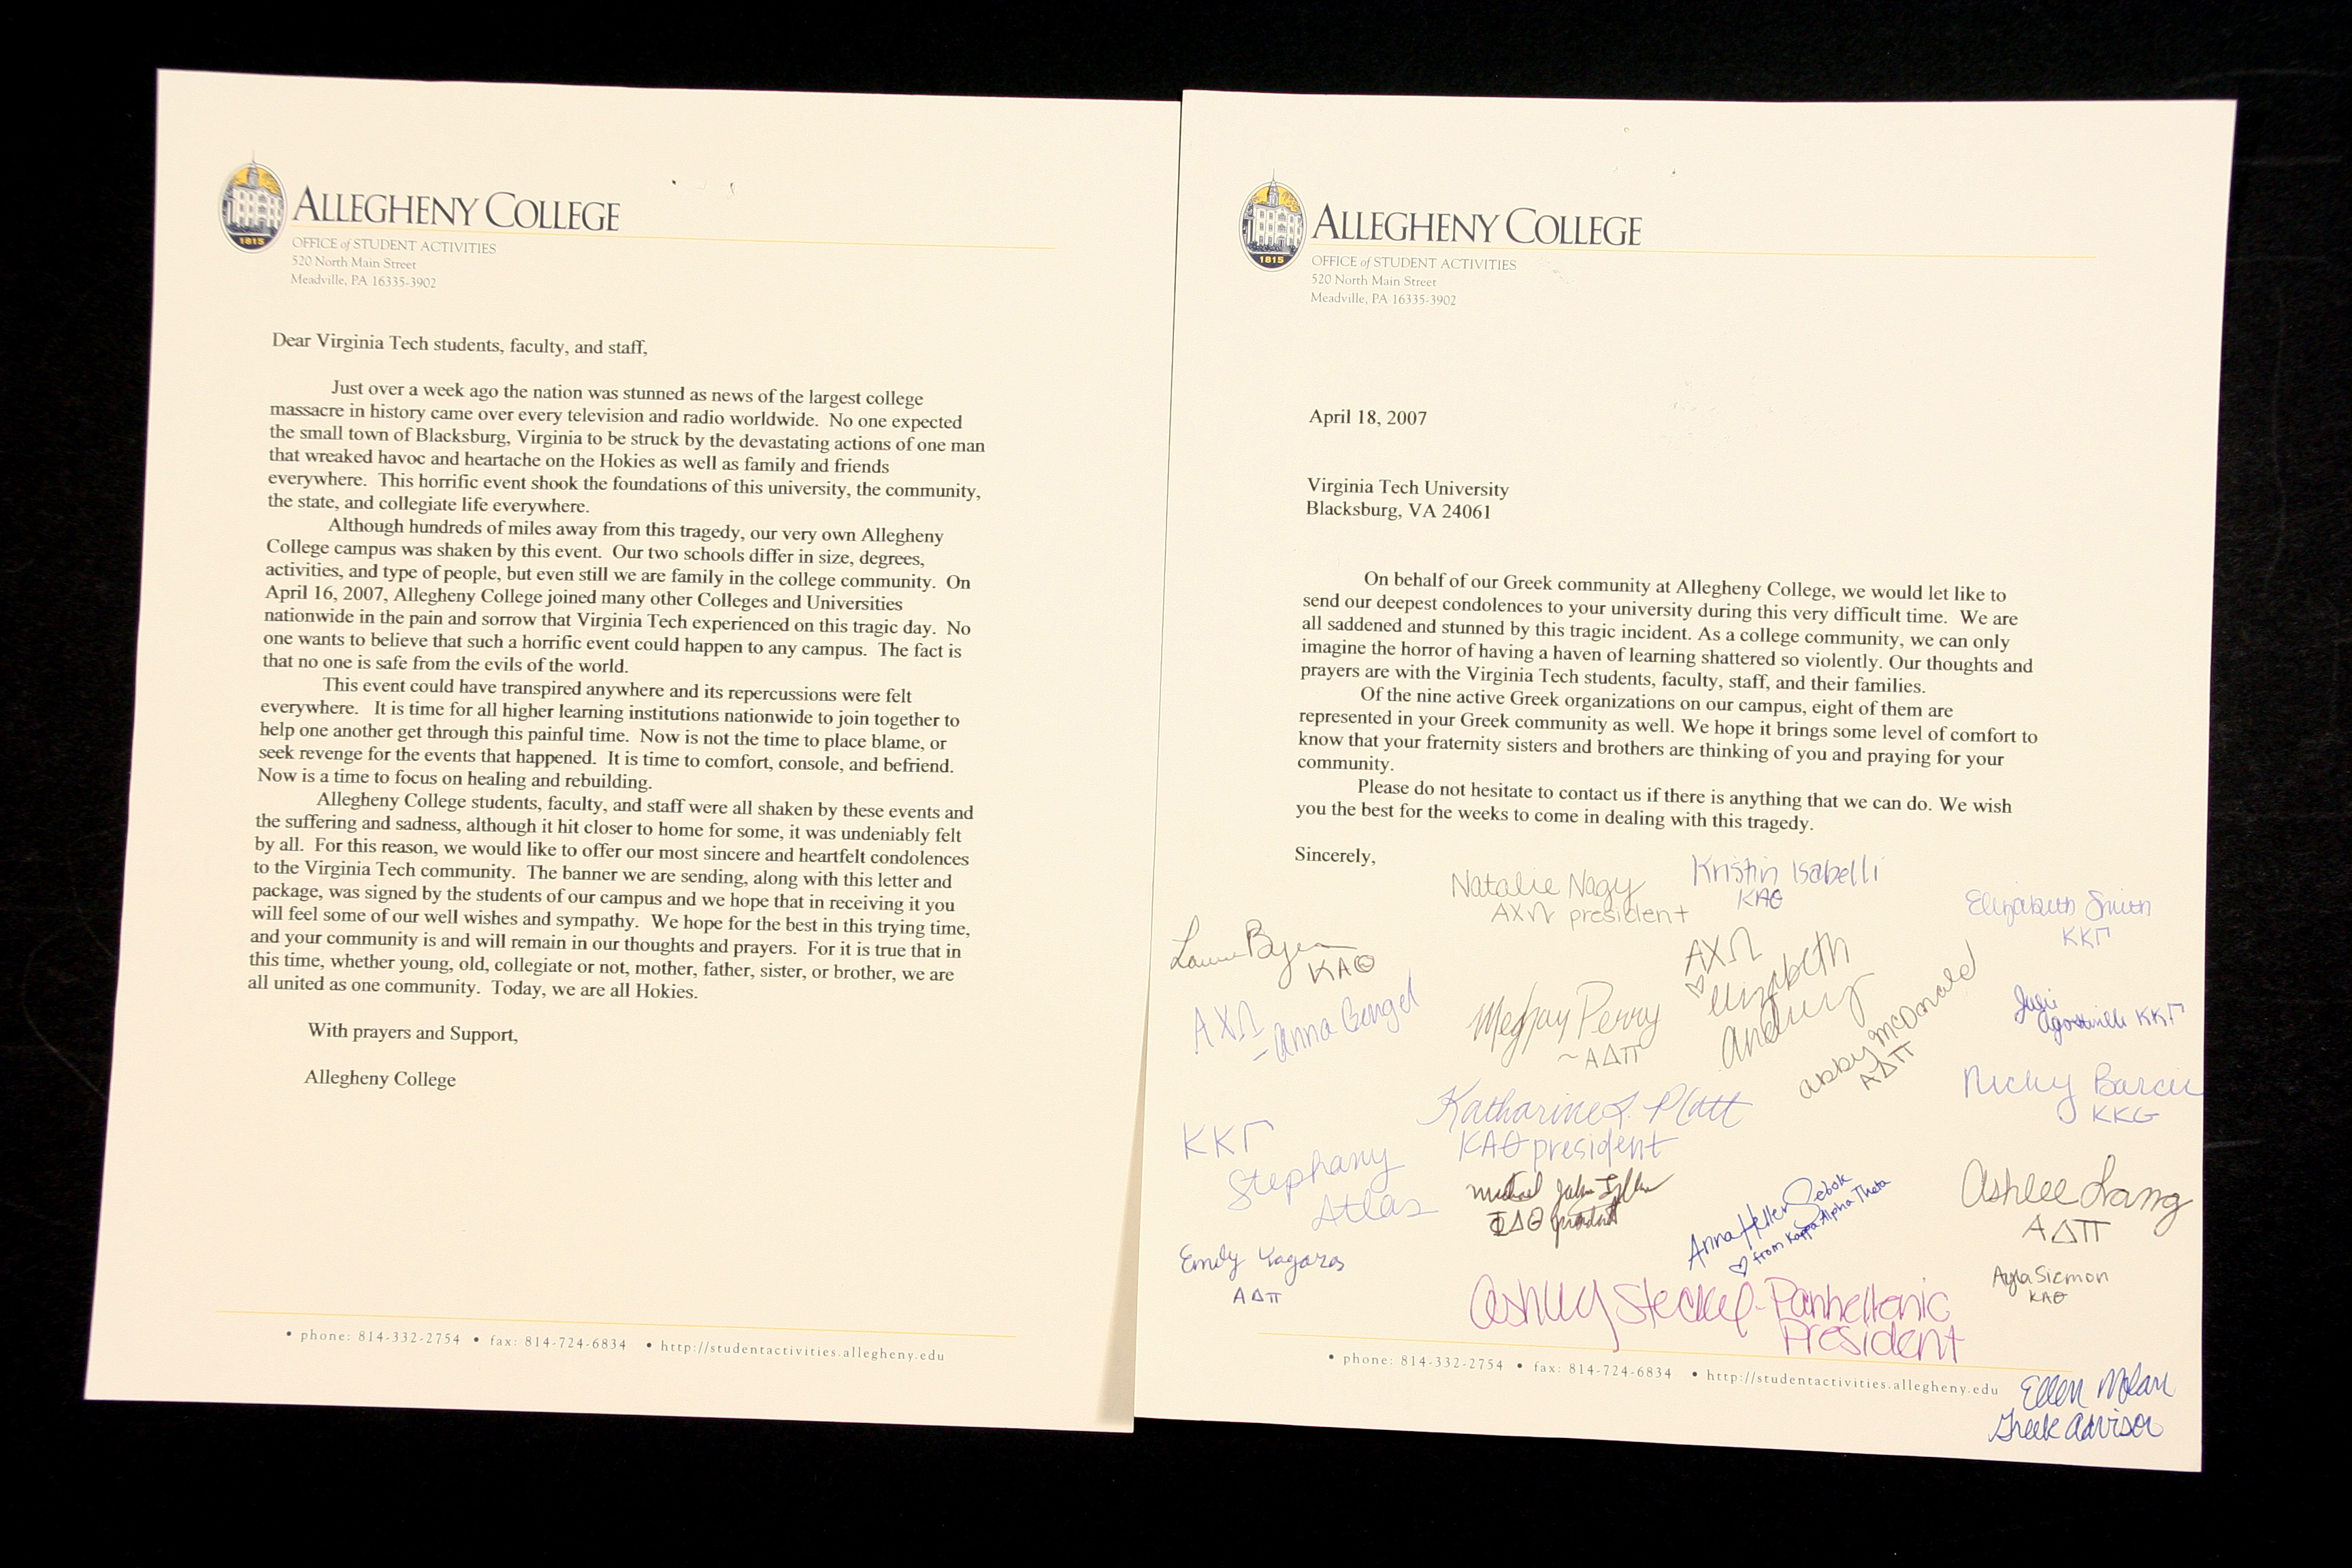 ALLEGHENY COLLEGE
OFFICE of STUDENT ACTIVITIES
520 North Main Street
Meadville, PA 16335-3902
1815
Dear Virginia Tech students, faculty, and staff,
Just over a week ago the nation was stunned as news of the largest college
massacre in history came over every television and radio worldwide. No one expected
the small town of Blacksburg, Virginia to be struck by the devastating actions of one man
that wreaked havoc and heartache on the Hokies as well as family and friends
everywhere. This horrific event shook the foundations of this university, the community,
the state, and collegiate life everywhere.
Although hundreds of miles away from this tragedy, our very own Allegheny
College campus was shaken by this event. Our two schools differ in size, degrees,
activities, and type of people, but even still we are family in the college community. On
April 16, 2007, Allegheny College joined many other Colleges and Universities
nationwide in the pain and sorrow that Virginia Tech experienced on this tragic day. No
one wants to believe that such a horrific event could happen to any campus. The fact is
that no one is safe from the evils of the world.
This event could have transpired anywhere and its repercussions were felt
everywhere. It is time for all higher learning institutions nationwide to join together to
help one another get through this painful time. Now is not the time to place blame, or
seek revenge for the events that happened. It is time to comfort, console, and befriend.
Now is a time to focus on healing and rebuilding.
Allegheny College students, faculty, and staff were all shaken by these events and
the suffering and sadness, although it hit closer to home for some, it was undeniably felt
by all. For this reason, we would like to offer our most sincere and heartfelt condolences
to the Virginia Tech community. The banner we are sending, along with this letter and
package, was signed by the students of our campus and we hope that in receiving it you
will feel some of our well wishes and sympathy. We hope for the best in this trying time,
and your community is and will remain in our thoughts and prayers. For it is true that in
this time, whether young, old, collegiate or not, mother, father, sister, or brother, we are
all united as one community. Today, we are all Hokies.
With prayers and Support,
Allegheny College
• phone: 814-332-2754 • fax: 814-724-6834 • http://studentactivities.allegheny.edu
ALLEGHENY COLLEGE
OFFICE of STUDENT ACTIVITIES
520 North Main Street
Meadville, PA 16335-3902
1815
April 18, 2007
Virginia Tech University
Blacksburg, VA 24061
On behalf of our Greek community at Allegheny College, we would let like to
send our deepest condolences to your university during this very difficult time. We are
all saddened and stunned by this tragic incident. As a college community, we can only
imagine the horror of having a haven of learning shattered so violently. Our thoughts and
prayers are with the Virginia Tech students, faculty, staff, and their families.
Of the nine active Greek organizations on our campus, eight of them are
represented in your Greek community as well. We hope it brings some level of comfort to
know that your fraternity sisters and brothers are thinking of you and praying for your
community.
Please do not hesitate to contact us if there is anything that we can do. We wish
you the best for the weeks to come in dealing with this tragedy.
Sincerely,
Natalie Nagy
ΑΧΩ president
Kristin Isabelli
ΚΑΘ
Elizabeth Smith
ΚΚΓ
ΚΑΘ
ΑΧΩ
Elizabeth
ΑΧΩ
- Anna
Meghan Perry
~ ΑΔΠ
Abby McDonald
ΑΔΠ
ΚΚΓ
Nicky
KKG
Katharine L. Platt
ΚΑΘ president
ΚΚΓ
Stephany
Atlas
Michael
ΦΔΘ president
Anna Heller Sebok
♡ from Kappa Alpha Theta
Ashlee Lang
ΑΔΠ
Emily
ΑΔΠ
Ayla Sicmon
ΚΑΘ
Ashley Steckel - Panhellenic
President
• phone: 814-332-2754 • fax: 814-724-6834 • http://studentactivities.allegheny.edu
Ellen
Greek Advisor